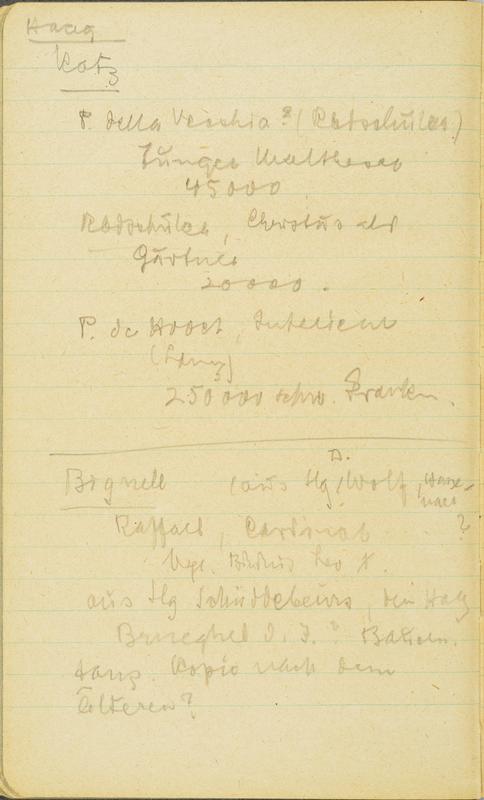 Haag
Katz
P. della Vecchia? (Rbdschüler)
Junger Malteser
45000
Rbdschüler, Christus als
Gärtner
20000.
P. de Hooch, Interieur
(Lanz)
250000 schw. Franken.
Bignell (aus Slg D. Wolf,
Raffael, Cardinal ?
bez. Bibbius Leo X.
aus Slg Schuddebeurs, den Haag
Brueghel d. J.? Bauern-
tanz. Kopie nach dem
Älteren?